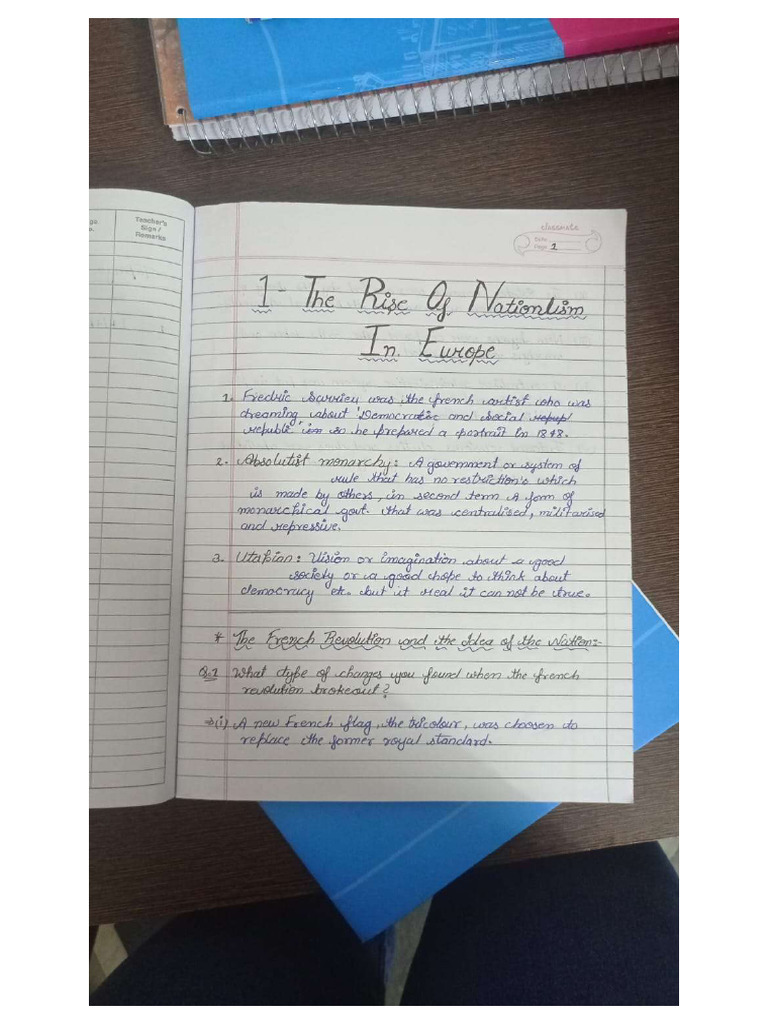 Teacher's
Sign /
Remarks
classmate
Date
Page 1
1 - The Rise Of Nationlism
In Europe
1. Fredric Surrieu was the french artist who was
dreaming about 'Democratic and social repup/
republic' ism so he prepared a portrait in 1848.
2. Absolutist monarchy : A government or system of
rule that has no restriction's which
is made by others, in second term A form of
monarchical govt. that was centralised, militarised
and repressive.
3. Utakian : Vision or imagination about a good
society or a good hope to think about
democracy etc. but it real it can not be true.
* The French Revolution and the Idea of the Nation:-
Q.1 What type of changes you found when the french
revolution brokeout?
⇒(i) A new French flag, the tricolour, was choosen to
replace the former royal standard.